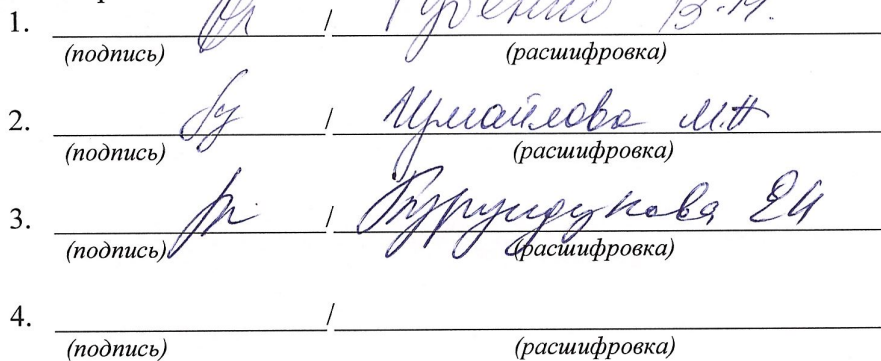 1. / Губенко В.М.
(подпись) (расшифровка)
2. / Измайлова М.П
(подпись) (расшифровка)
3. / Бурундукова ЕИ
(подпись) (расшифровка)
4. /
(подпись) (расшифровка)